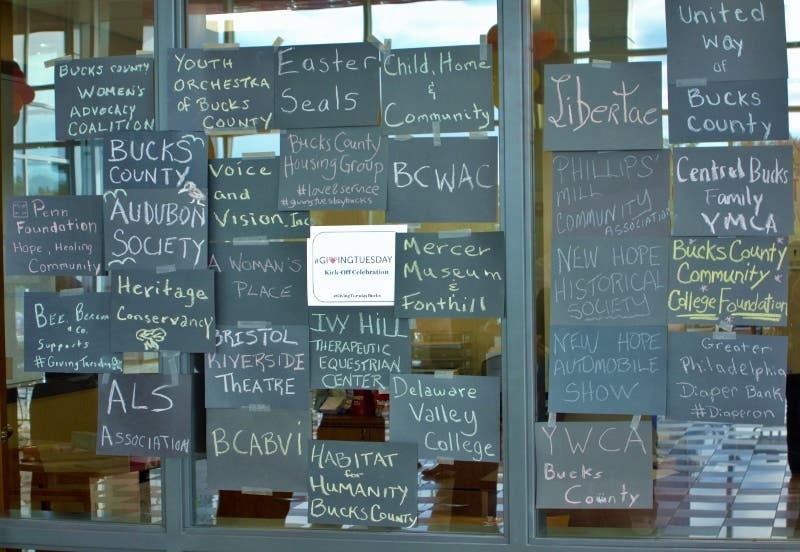 BUCKS COUNTY
WOMEN'S
ADVOCACY
COALITION
YOUTH
ORCHESTRA
of BUCKS
COUNTY
Easter
Seals
Child, Home
&
Community
BUCKS
COUNTY
AUDUBON
SOCIETY
Voice
and
Vision, Inc
Bucks County
Housing Group
#love&service
#givingtuesdaybucks
BCWAC
Penn
Foundation
Hope, Healing
Community
Heritage
Conservancy
A WOMAN'S
PLACE
#GIVINGTUESDAY
Kick-Off Celebration
#GivingTuesdayBucks
Mercer
Museum
&
Fonthill
BEE, 
& Co.
Supports
#GivingTuesday
BRISTOL
RIVERSIDE
THEATRE
IVY HILL
THERAPEUTIC
EQUESTRIAN
CENTER
ALS
ASSOCIATION
BCABVI
Delaware
Valley
College
HABITAT
for
HUMANITY
BUCKS COUNTY
Libertae
United
Way
of
Bucks
County
PHILLIPS'
MILL
COMMUNITY
ASSOCIATION
Central Bucks
Family
YMCA
NEW HOPE
HISTORICAL
SOCIETY
Bucks County
Community
College Foundation
NEW HOPE
AUTOMOBILE
SHOW
Greater
Philadelphia
Diaper Bank
#Diaperon
YWCA
Bucks
County